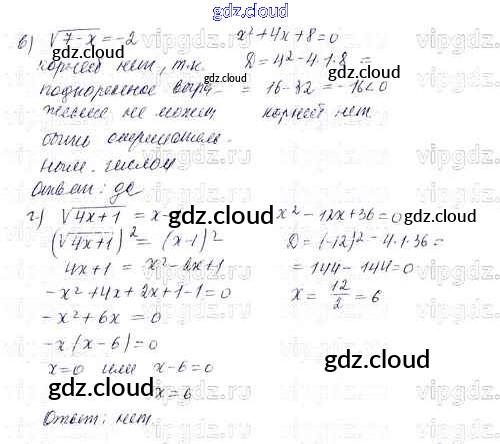 gdz.cloud
в) √7-x = -2
корней нет, т.к.
подкоренное выра-
жение не может
быть отрицатель-
ным числом
Ответ: да
x² + 4x + 8 = 0
D = 4² - 4·1·8 =
= 16 - 32 = -16 < 0
корней нет
г) √4x+1 = x-
(√4x+1)² = (x-1)²
4x+1 = x² - 2x + 1
-x² + 4x + 2x + 1 - 1 = 0
-x² + 6x = 0
-x(x-6) = 0
x = 0 или x - 6 = 0
x = 6
Ответ: нет.
x² - 12x + 36 = 0
D = (-12)² - 4·1·36 =
= 144 - 144 = 0
x = 12/2 = 6
gdz.cloud
gdz.cloud
gdz.cloud
gdz.cloud
gdz.cloud